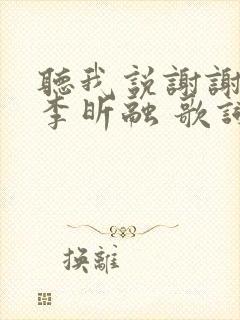 聽我説謝謝
李昕融 歌詞
換離